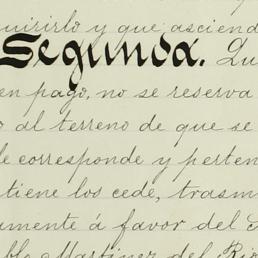 uirirlo y que asciend
Segunda. Qu
en pago, no se reserva
o al terreno de que se
le corresponde y perten
tiene los cede, trasm
amente á favor del S
ablo Martinez del Rio